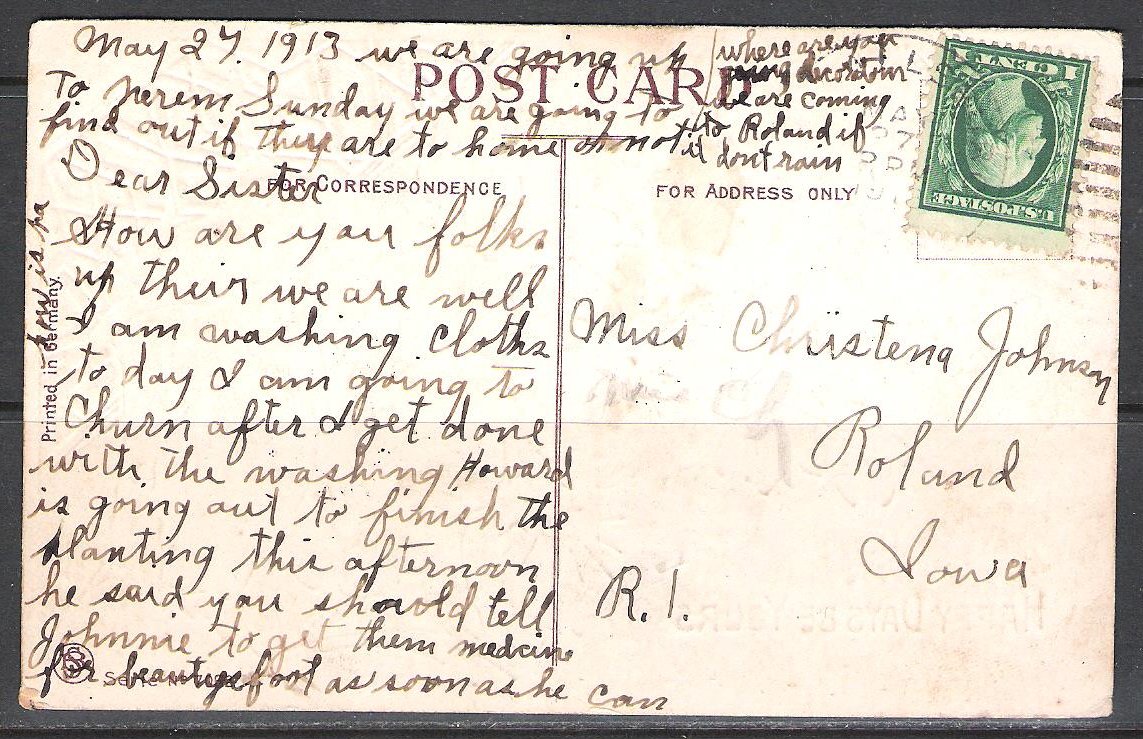 May 27. 1913 we are going up
to Sunday we are going to
find out if they are to home or not
where are you
going dicoration
we are coming
to Roland if
it dont rain
POST CARD
FOR CORRESPONDENCE
FOR ADDRESS ONLY
Dear Sister
How are you folks
up thier we are well
I am washing cloths
to day I am going to
Churn after I get done
with the washing Howard
is going out to finish the
planting this afternoon
he said you shoould tell
Johnnie to get them medcine
for beautys foot as soon as he can
how is pa
Printed in Germany.
Serie No
1 CENT 1
U.S. POSTAGE
Miss Christena Johnson
Roland
Iowa
R. 1.
HAPPY DAYS BE YOURS